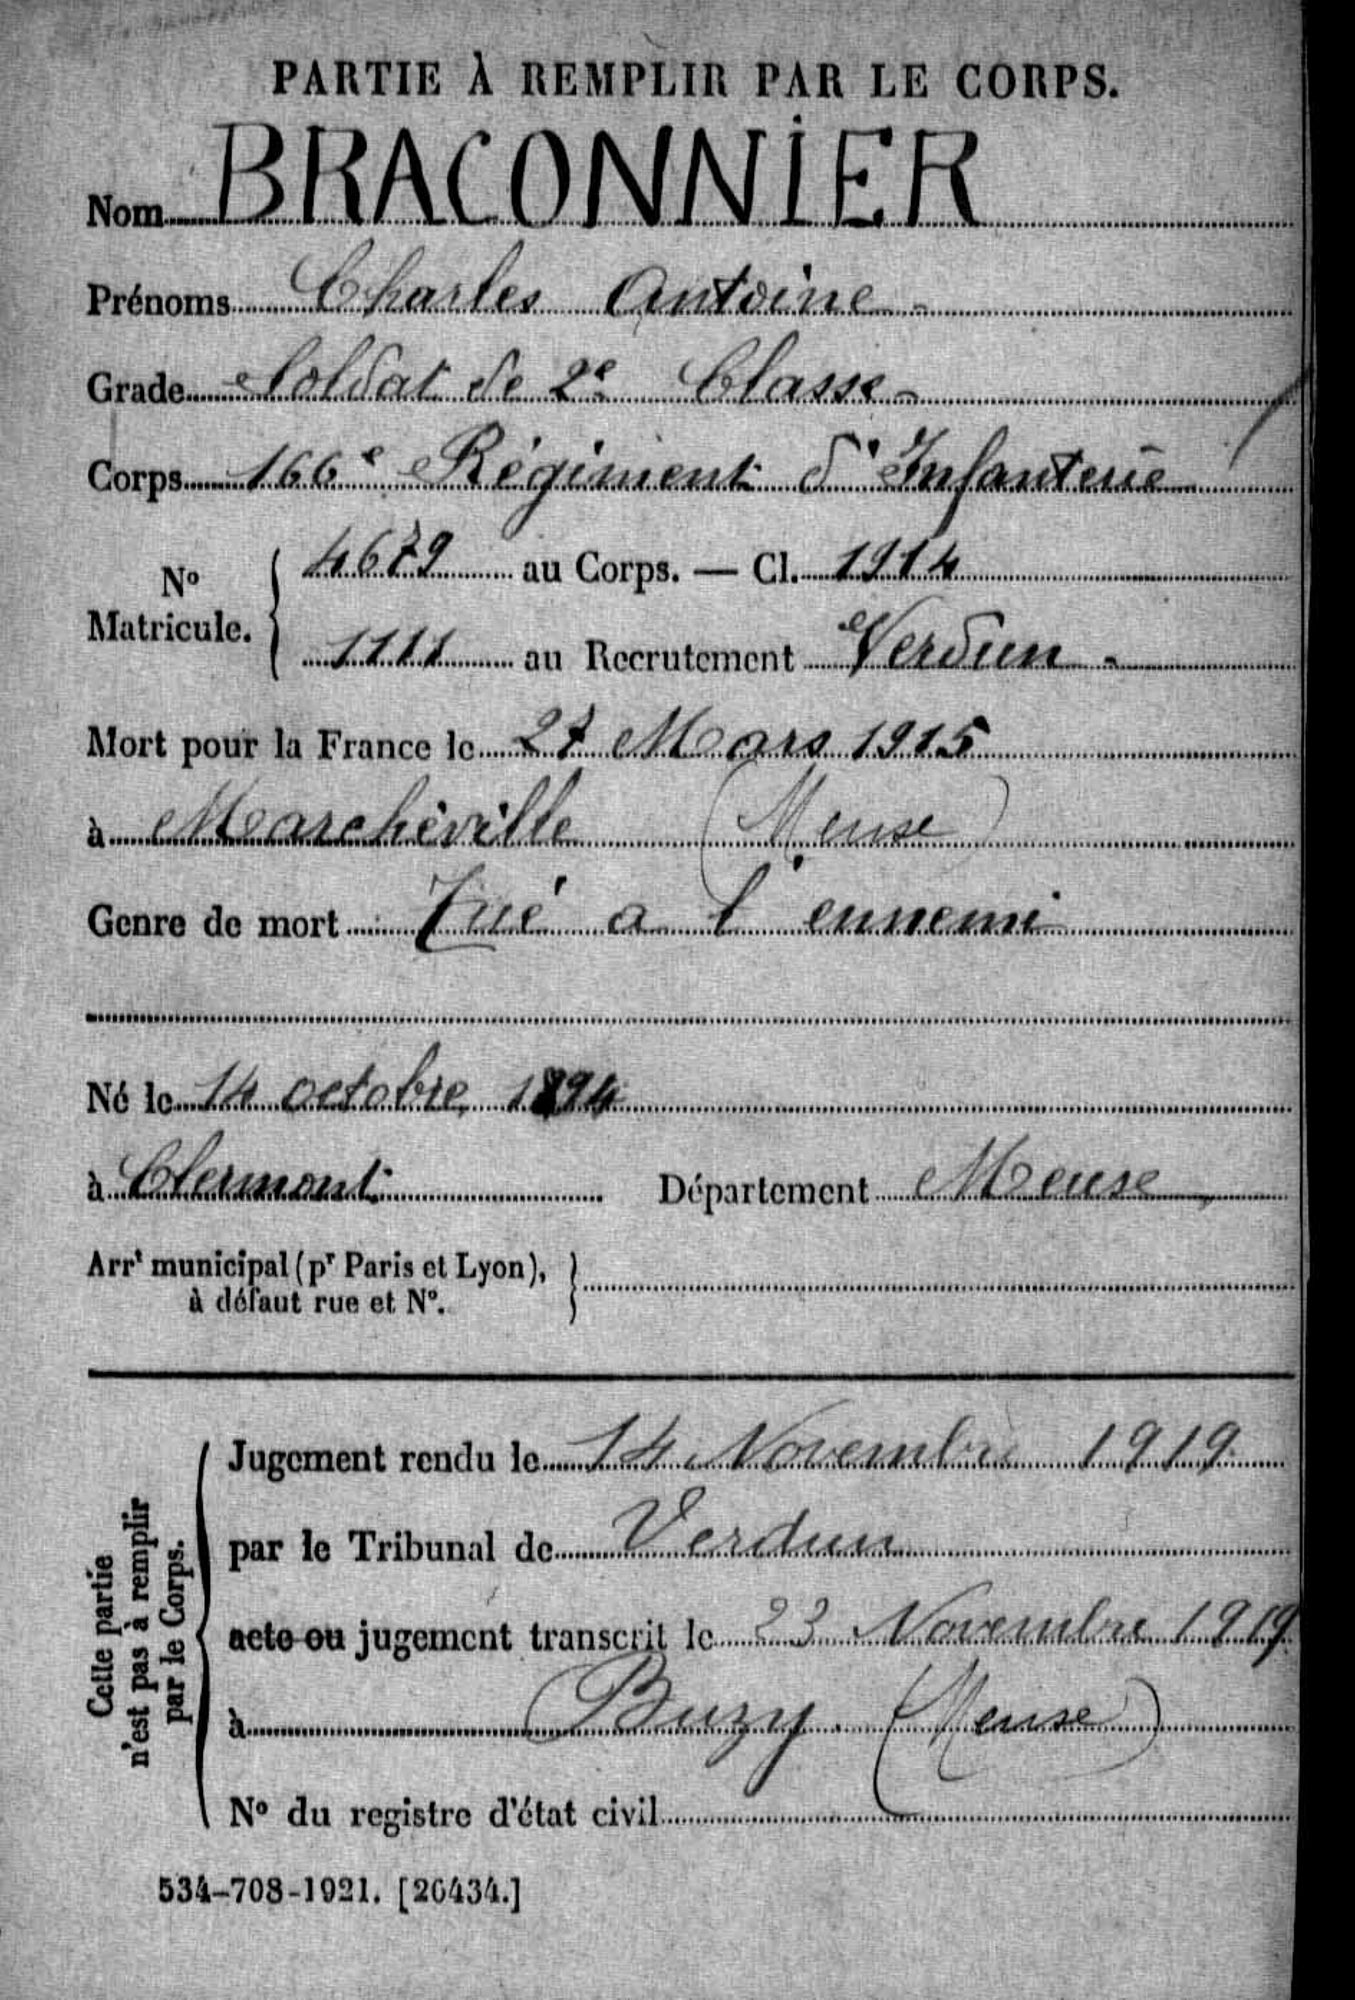 PARTIE À REMPLIR PAR LE CORPS.
Nom BRACONNIER
Prénoms Charles Antoine -
Grade Soldat de 2e Classe -
Corps 166e Régiment d'Infanterie
No Matricule. { 4679 au Corps. — Cl. 1914
1111 au Recrutement Verdun -
Mort pour la France le 27 Mars 1915
à Marchéville (Meuse)
Genre de mort Tué a l'ennemi
Né le 14 octobre 1894
à Clermont Département Meuse
Arrt municipal (pr Paris et Lyon), }
à défaut rue et No.
Cette partie
n'est pas à remplir
par le Corps.
Jugement rendu le 14 Novembre 1919
par le Tribunal de Verdun
acte ou jugement transcrit le 23 Novembre 1919
à Buzy (Meuse)
No du registre d'état civil
534-708-1921. [26434.]